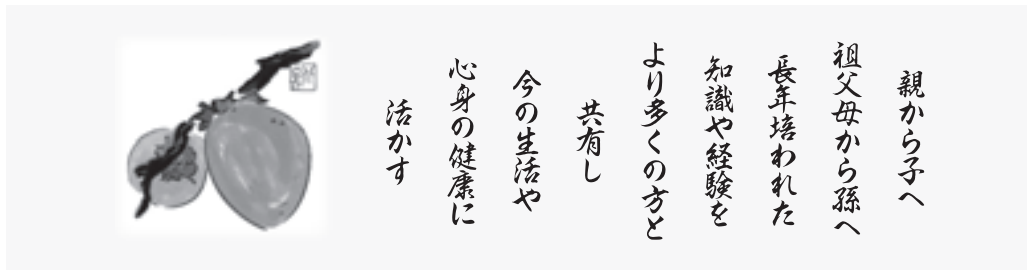 親から子へ
祖父母から孫へ
長年培われた
知識や経験を
より多くの方と
共有し
今の生活や
心身の健康に
活かす